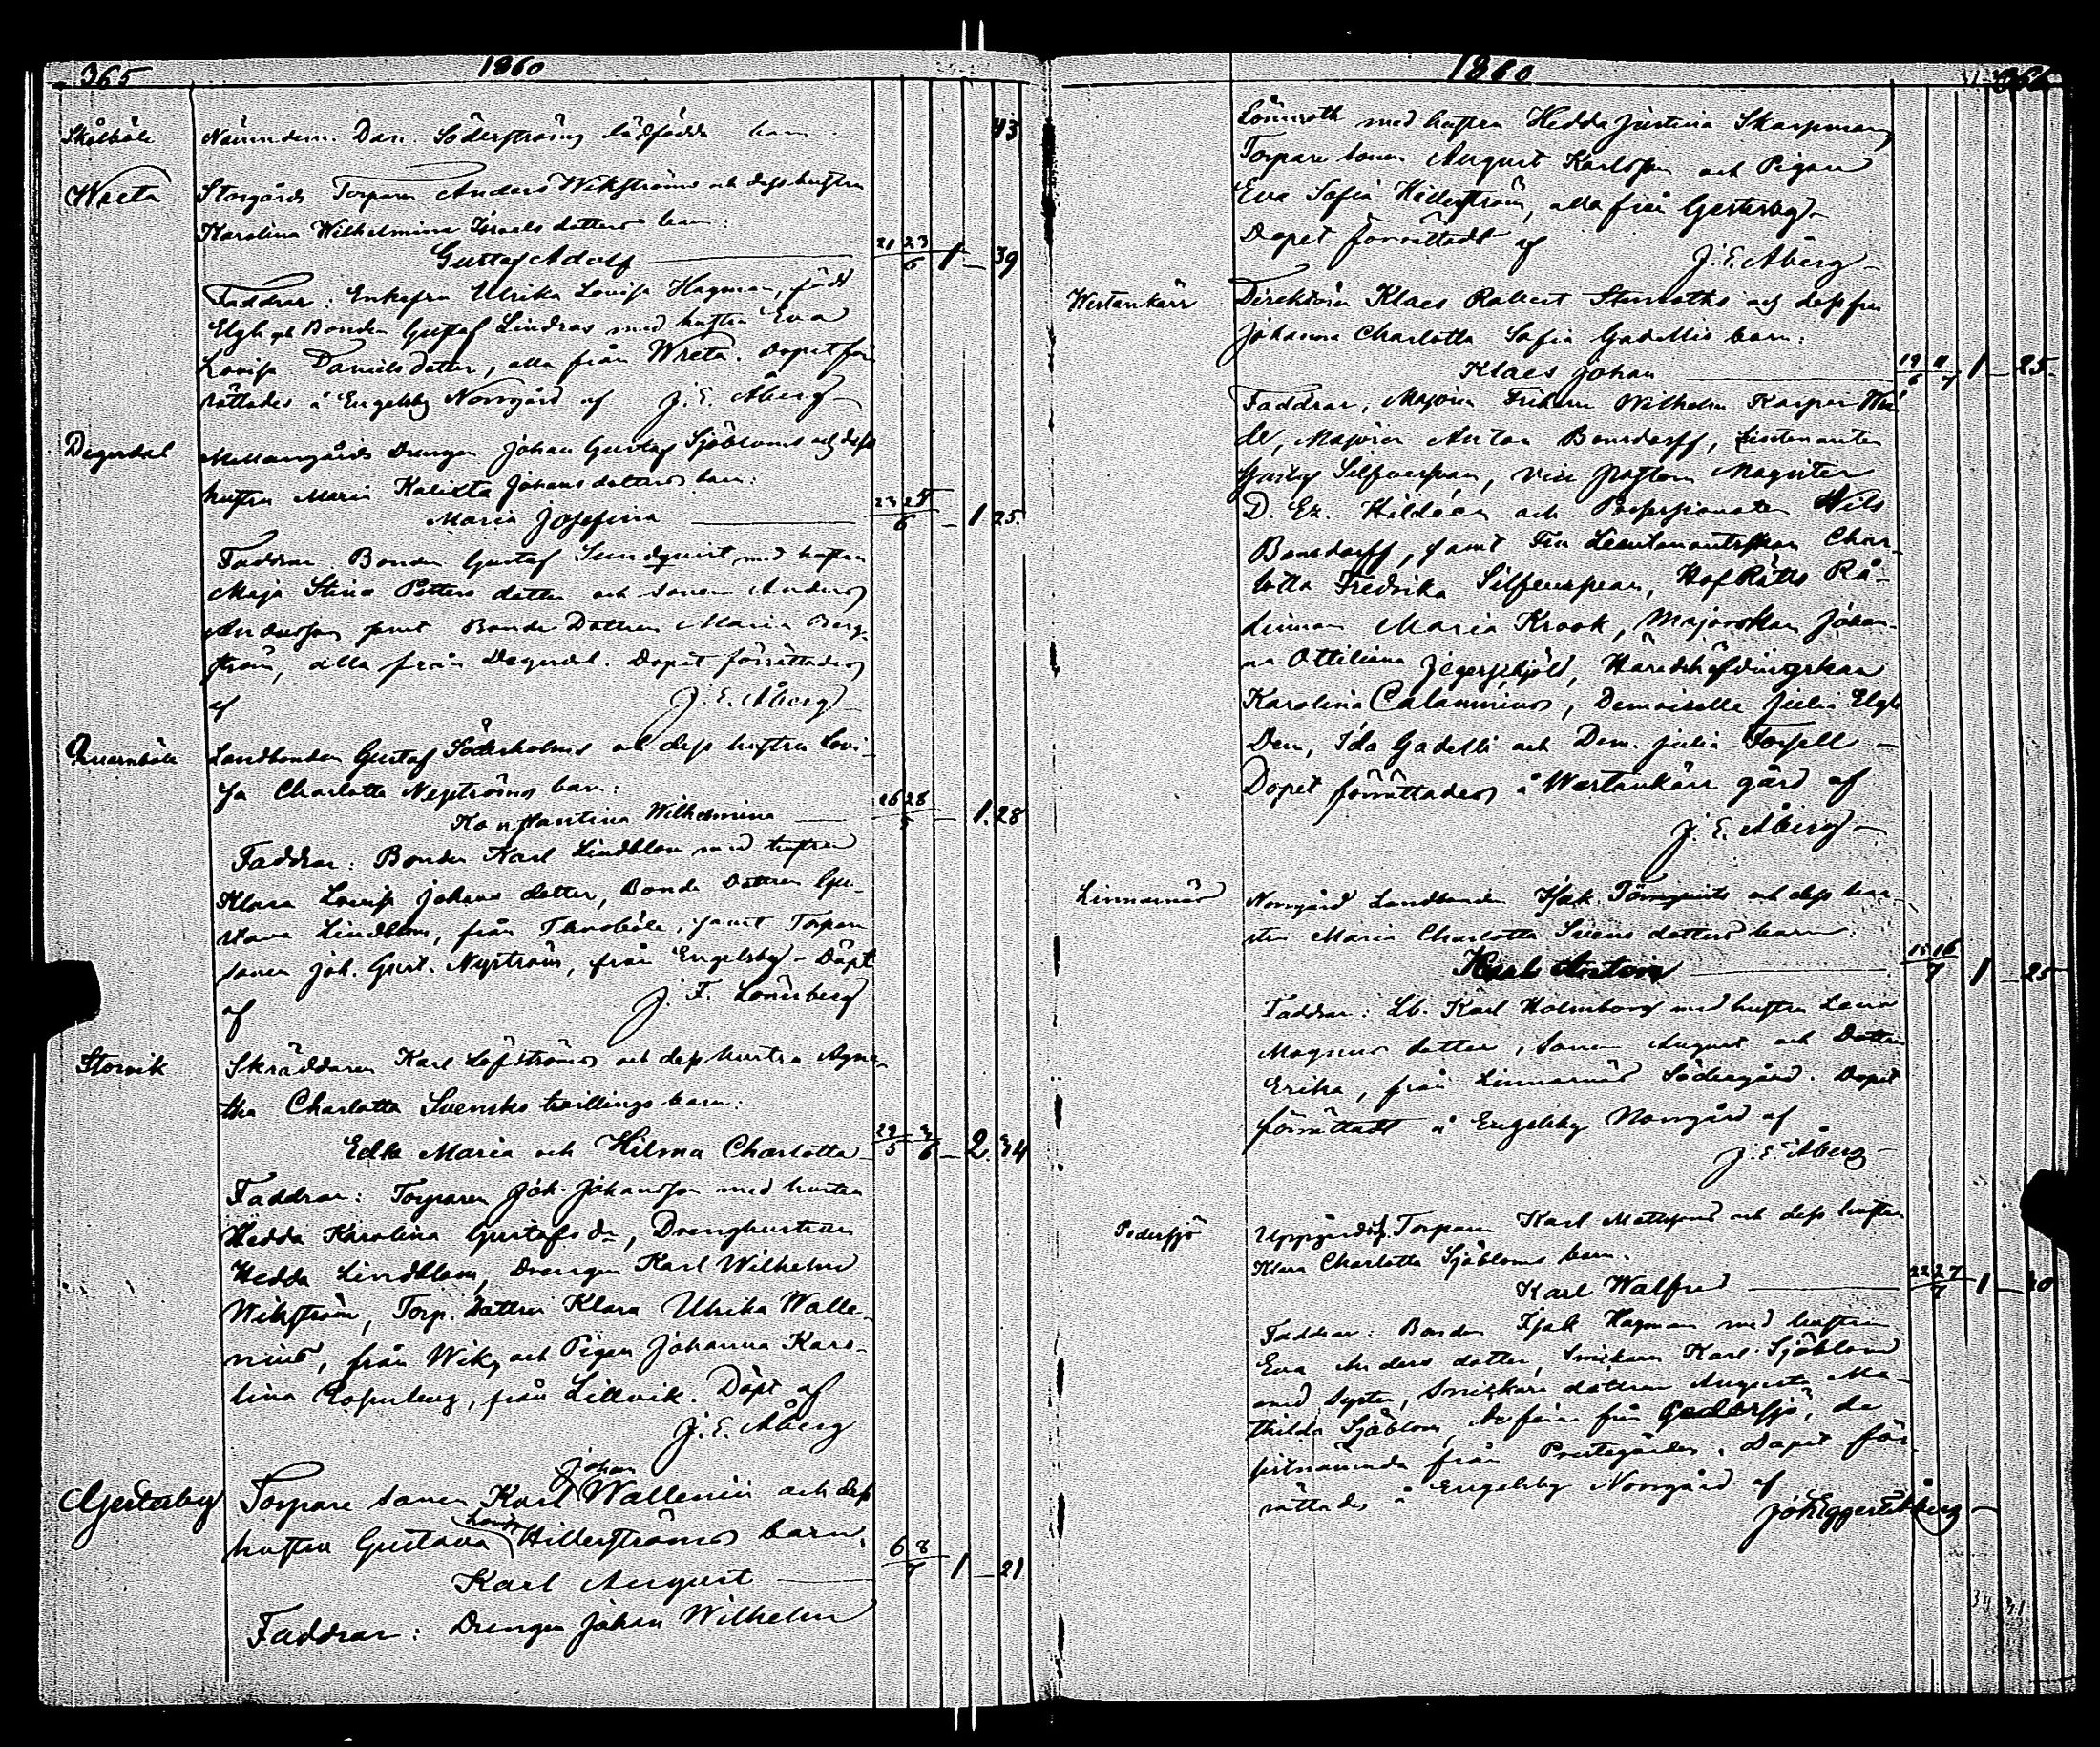 365 1860
Skålböle Nämndem. Dan. Söderströms dödfödda barn. 43
Wreta Storgårds Torparen Anders Wikströms och dess hustru
Karolina Wilhelmina Israels dotters barn:
Gustaf Adolf 21 23/6 1 – 39
Faddrar: Enkefru Ulrika Lovisa Hagman, född
Elgh och Bonden Gustaf Lindros med hustru Eva
Lovisa Danielsdotter, alla från Wreta. Dopet för-
rättades å Engelsby Norrgård af J. E. Åberg
Degerdal Mellangårds Drengen Johan Gustaf Sjöbloms och dess
hustru Maria Kalixta Johansdotters barn:
Maria Josefina 23 25/6 – 1 25.
Faddrar. Bonden Gustaf Sundqvist med hustru
Maja Stina Petters dotter och sonen Anders
Andersson samt Bonde Dottren Maria Berg-
ström, alla från Degerdal. Dopet förrättades
af J. E. Åberg
Qvarnböle Landbonden Gustaf Söderholms och dess hustru Lovi-
sa Charlotta Nyströms barn:
Konstantina Wilhelmina 26 28/5 – 1. 28
Faddrar: Bonden Karl Lindblom med hustru
Klara Lovisa Johans dotter, Bonde Dottren Gu-
stava Lindblom, från samt Torpare
sonen Joh. Gust. Nyström, från Engelsby – Döpt
af J. F. Lönnberg
Storvik Skräddaren Karl Löfströms och dess hustru Agne-
tha Charlotta Svensks tvillings barn:
Edla Maria och Hilma Charlotta 29/5 3/6 – 2. 34
Faddrar: Torparen Joh. Johansson med hustru
Hedda Karolina Gustafs dr, Drenghustrun
Hedda Lindblom, Drengen Karl Wilhelm
Wikström, Torp. Dottren Klara Ulrika Walle-
nius, från Wik, och Pigan Johanna Karo-
lina Rosenberg, från Lillvik. Döpt af
J. E. Åberg
Johan
Gesterby Torpare sonen Karl Wallenii och dess
hustru Gustava Lovisa Hillerströms barn:
Karl August 6 8/7 1 – 21
Faddrar: Drengen Johan Wilhelm
1860 366
Lönnroth med hustru Hedda Justina Skarpman,
Torpare sonen August Karlsson och Pigan
Eva Sofia Hillerström, alla från Gesterby –
Dopet förrättadt af
J. E. Åberg –
Westankärr Direktören Klaes Robert Stenroths och dess fru
Johanna Charlotta Sofia Gadellis barn:
Klaes Johan 19/6 11/7 1 – 25.
Faddrar, Majoren Friherre Wilhelm Kasper
de, Majoren Anton Bonsdorff, Lieutenanten
Gustaf Silfversvan, Vice pastorn Magister
D. Ez. Hildéen och Possessionaten Nils
Bonsdorff, samt Fru Lieutenantskan Char-
lotta Fredrika Silfversvan, HofRätts Rå-
dinnan Maria Krook, Majorskan Johan-
na Ottiliana Jegerskjöld, Häradshöfdingskan
Karolina Calamnius, Demoiselle Julia Elgh
Dem, Ida Gadelli och Dem. Julia Forsell –
Dopet förrättades å Westankärr gård af
J. E. Åberg –
Linnarnäs Norrgård Landbonden Isak Törnqvists och dess hu-
stru Maria Charlotta Svens dotters barn:
Karl Anton 15 16/7 1 – 25
Faddrar: Lb. Karl Holmborg med hustru Lena
Magnus dotter, Sonen August och Dottren
Erika, från Linnarnäs Södergård. Dopet
förrättadt å Engelsby Norrgård af
J. E. Åberg –
Pedersjö Uppgårds Torparen Karl Mattssons och dess hustru
Klara Charlotta Sjöbloms barn.
Karl Walfred 22 27/7 1 – 20
Faddrar: Bonden Isak Hagman med hustrun
Eva Anders dotter, Snickaren Karl Sjöblom
med syster, Snickare dottren Augusta Ma-
thilda Sjöblom, de förra från Pedersjö, de
sistnämnda från Prestgården. Dopet för-
rättades å Engelsby Norrgård af
Joh Eggert Åberg –